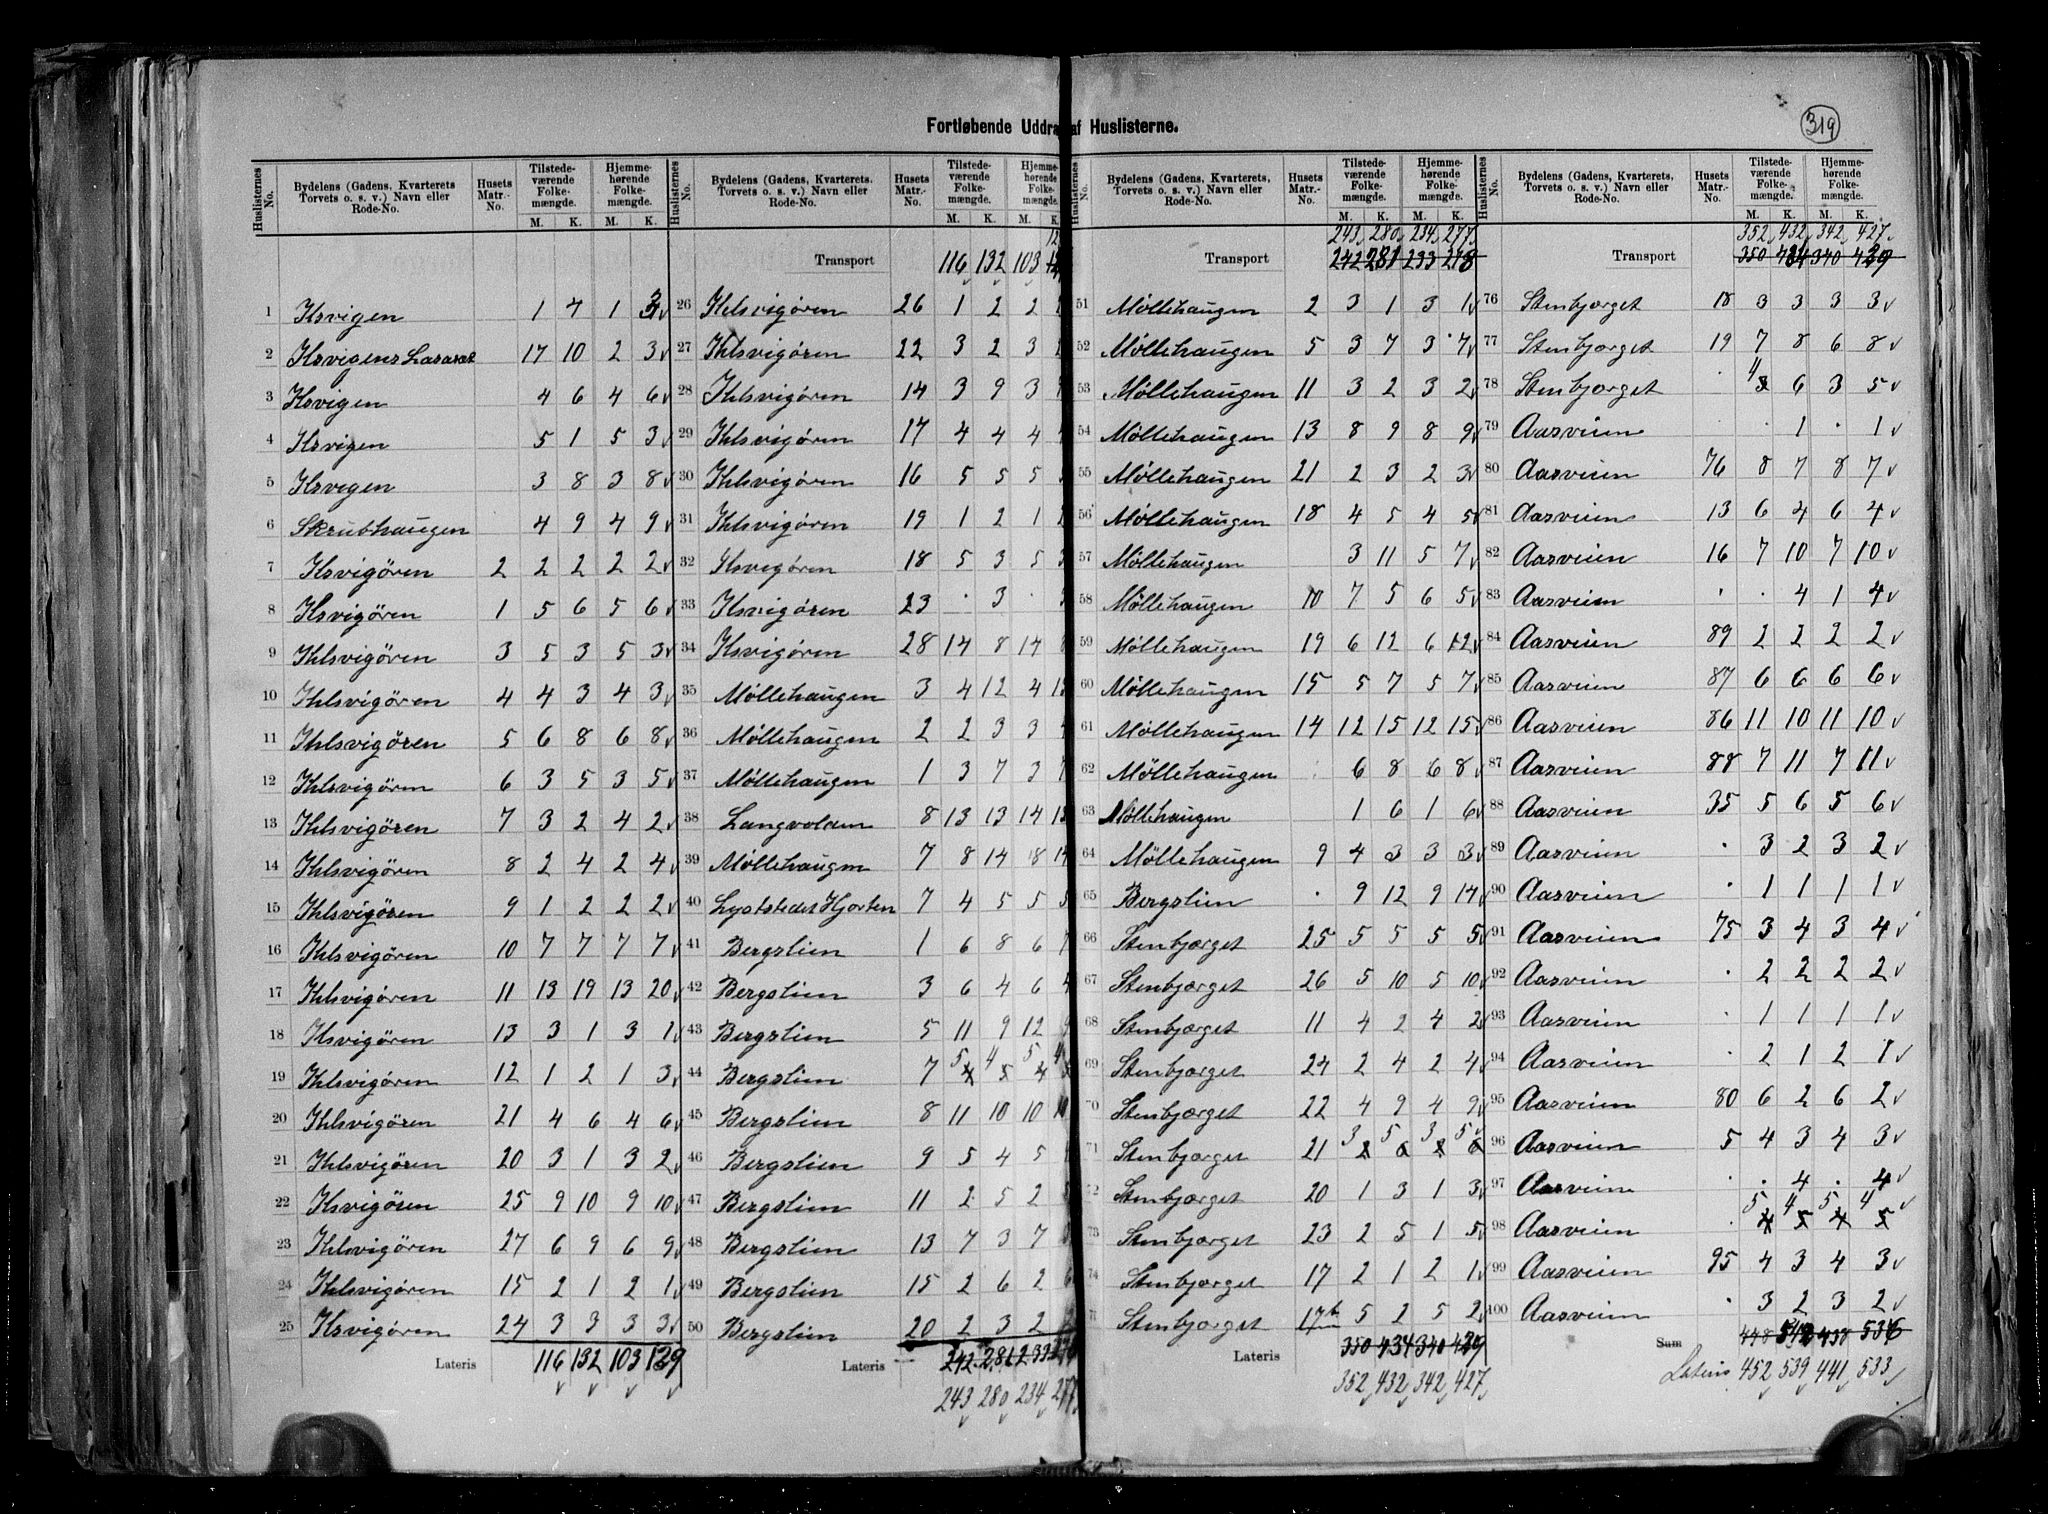 319
Fortløbende Uddra af Huslisterne.
Huslisternes No. | Bydelens (Gadens, Kvarterets Torvets o. s. v.) Navn eller Rode-No. | Husets Matr.-No. | Tilstedeværende Folkemængde. M. K. | Hjemmehørende Folkemængde. M. K.
1 Ilsvigen 1 7 1 3
2 Ilsvigens Lasaret 17 10 2 3
3 Ilsvigen 4 6 4 6
4 Ilsvigen 5 1 5 3
5 Ilsvigen 3 8 3 8
6 Skrubhaugen 4 9 4 9
7 Ilsvigören 2 2 2 2 2
8 Ilsvigören 1 5 6 5 6
9 Ihlsvigören 3 5 3 5 3
10 Ihlsvigören 4 4 3 4 3
11 Ihlsvigören 5 6 8 6 8
12 Ihlsvigören 6 3 5 3 5
13 Ihlsvigören 7 3 2 4 2
14 Ihlsvigören 8 2 4 2 4
15 Ihlsvigören 9 1 2 2 2
16 Ihlsvigören 10 7 7 7 7
17 Ihlsvigören 11 13 19 13 20
18 Ilsvigören 13 3 1 3 1
19 Ihlsvigören 12 1 2 1 3
20 Ihlsvigören 21 4 6 4 6
21 Ihlsvigören 20 3 1 3 2
22 Ilsvigören 25 9 10 9 10
23 Ihlsvigören 27 6 9 6 9
24 Ihlsvigören 15 2 1 2 1
25 Ilsvigören 24 3 3 3 3
Lateris 116 132 103 129
Huslisternes No. | Bydelens (Gadens, Kvarterets, Torvets o. s. v.) Navn eller Rode-No. | Husets Matr.-No. | Tilstedeværende Folkemængde. M. K. | Hjemmehørende Folkemængde. M. K.
Transport 116 132 103
26 Ihlsvigören 26 1 2 2
27 Ihlsvigören 22 3 2 3
28 Ihlsvigören 14 3 9 3
29 Ihlsvigören 17 4 4 4
30 Ihlsvigören 16 5 5 5
31 Ihlsvigören 19 1 2 1
32 Ilsvigören 18 5 3 5
33 Ilsvigören 23 . 3 .
34 Ilsvigören 28 14 8 14
35 Møllehaugen 3 4 12 4
36 Møllehaugen 2 2 3 3
37 Møllehaugen 1 3 7 3
38 Langvolden 8 13 13 14
39 Møllehaugen 7 8 14 8 14
40 Lyststedet Hjorten 7 4 5 5 5
41 Bergslien 1 6 8 6 7
42 Bergslien 3 6 4 6
43 Bergslien 5 11 9 12
44 Bergslien 7 5 4 5 4
45 Bergslien 8 11 10 10 10
46 Bergslien 9 5 4 5
47 Bergslien 11 2 5 2
48 Bergslien 13 7 3 7
49 Bergslien 15 2 6 2 6
50 Bergslien 20 2 3 2
Lateris 242 281 233
243 280 234 277
Huslisternes No. | Bydelens (Gadens, Kvarterets, Torvets o. s. v.) Navn eller Rode-No. | Husets Matr.-No. | Tilstedeværende Folkemængde. M. K. | Hjemmehørende Folkemængde. M. K.
243 280 234 277
Transport 242 281 233 278
51 Møllehaugen 2 3 1 3 1
52 Møllehaugen 5 3 7 3 7
53 Møllehaugen 11 3 2 3 2
54 Møllehaugen 13 8 9 8 9
55 Møllehaugen 21 2 3 2 3
56 Møllehaugen 18 4 5 4 5
57 Møllehaugen 3 11 5 7
58 Møllehaugen 10 7 5 6 5
59 Møllehaugen 19 6 12 6 12
60 Møllehaugen 15 5 7 5 7
61 Møllehaugen 14 12 15 12 15
62 Møllehaugen 6 8 6 8
63 Møllehaugen 1 6 1 6
64 Møllehaugen 9 4 3 3 3
65 Bergslien . 9 12 9 14
66 Stenbjærget 25 5 5 5 5
67 Stenbjærget 26 5 10 5 10
68 Stenbjærget 11 4 2 4 2
69 Stenbjærget 24 2 4 2 4
70 Stenbjærget 22 4 9 4 9
71 Stenbjærget 21 3 5 3 5
72 Stenbjærget 20 1 3 1 3
73 Stenbjærget 23 2 5 1 5
74 Stenbjærget 17 2 1 2 1
7 Stenbjærget 17b 5 2 5 2
Lateris 350 434 340 429
352 432 342 427
Huslisternes No. | Bydelens (Gadens, Kvarterets, Torvets o. s. v.) Navn eller Rode-No. | Husets Matr.-No. | Tilstedeværende Folkemængde. M. K. | Hjemmehørende Folkemængde. M. K.
352 432 342 427
Transport 350 434 340 429
76 Stenbjærget 18 3 3 3 3
77 Stenbjærget 19 7 8 6 8
78 Stenbjærget . 4 6 3 5
79 Aasveien . . 1 . 1
80 Aasveien 76 8 7 8 7
81 Aasveien 13 6 4 6 4
82 Aasveien 16 7 10 7 10
83 Aasveien . . 4 1 4
84 Aasveien 89 2 2 2 2
85 Aasveien 87 6 6 6 6
86 Aasveien 86 11 10 11 10
87 Aasveien 88 7 11 7 11
88 Aasveien 35 5 6 5 6
89 Aasveien . 3 2 3 2
90 Aasveien . 1 1 1 1
91 Aasveien 75 3 4 3 4
92 Aasveien . 2 2 2 2
93 Aasveien . 1 1 1 1
94 Aasveien . 2 1 2 1
95 Aasveien 80 6 2 6 2
96 Aasveien 5 4 3 4 3
97 Aasveien . . 4 . 4
98 Aasveien . 5 4 5 4
99 Aasveien 95 4 3 4 3
100 Aasveien . 3 2 3 2
Sum 448 542 438 536
Lateris 452 539 441 533